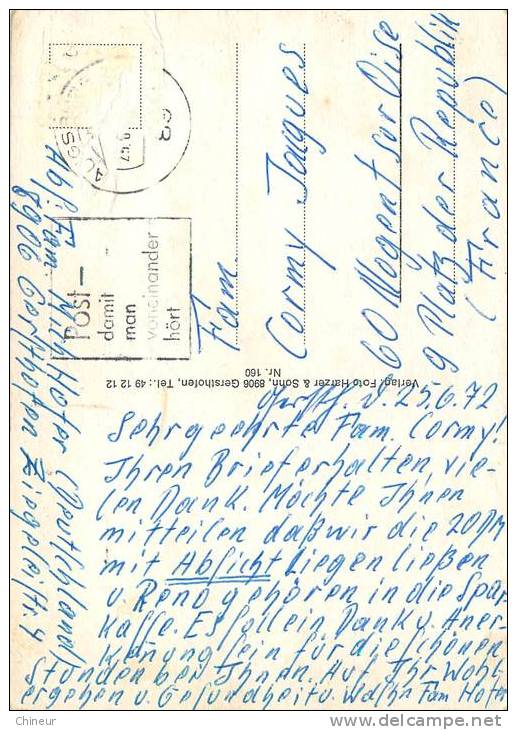 Post—
damit
man
voneinander
hört
89
AUGSBURG
Fam.
Cormy Jaques
60 Nogent sor Oise
9 Platz der Republik
(France)
Abs. Fam.
Hofer (Deutschland)
8906 Gersthofen Ziegeleistr. 4
Verlag: Foto Harzer & Sohn, 8906 Gersthofen, Tel.: 49 12 12
Nr. 160
Gersth. d. 25.6.72
Sehrgeehrte Fam. Cormy!
Ihren Brief erhalten, vie-
len Dank. Möchte Ihnen
mitteilen daßwir die 20 DM
mit Absicht Liegen ließen
u. Reno gehören in die Spar-
kasse. Es soll ein Dank u. Aner-
kenung sein für die schönen
Stunden bei Ihnen. Auf Ihr Wohl-
ergehen u. Gesundheit u. Fam Hofer
Chineur
delcampe.net